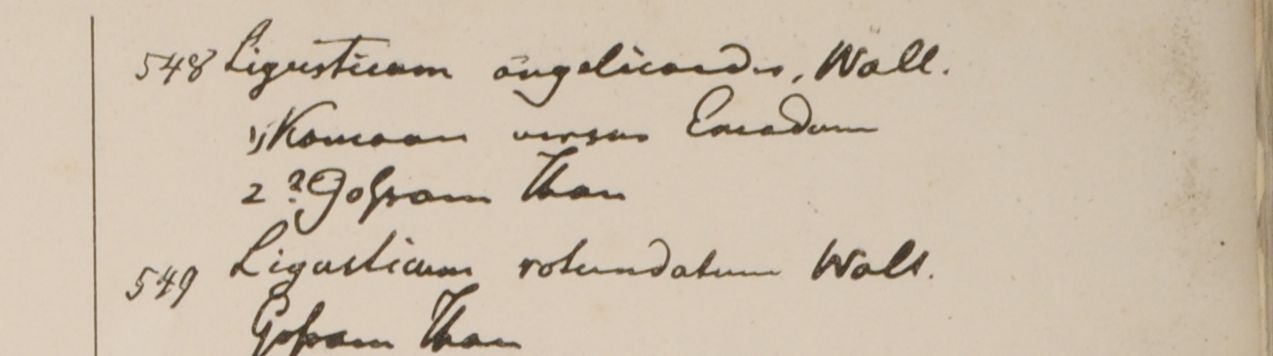 548 Ligusticum angelicoides, Wall.
1) Kamaon versus Emodum
2 ? Gossam Than
549 Ligusticum rotundatum Wall.
Gossam Than